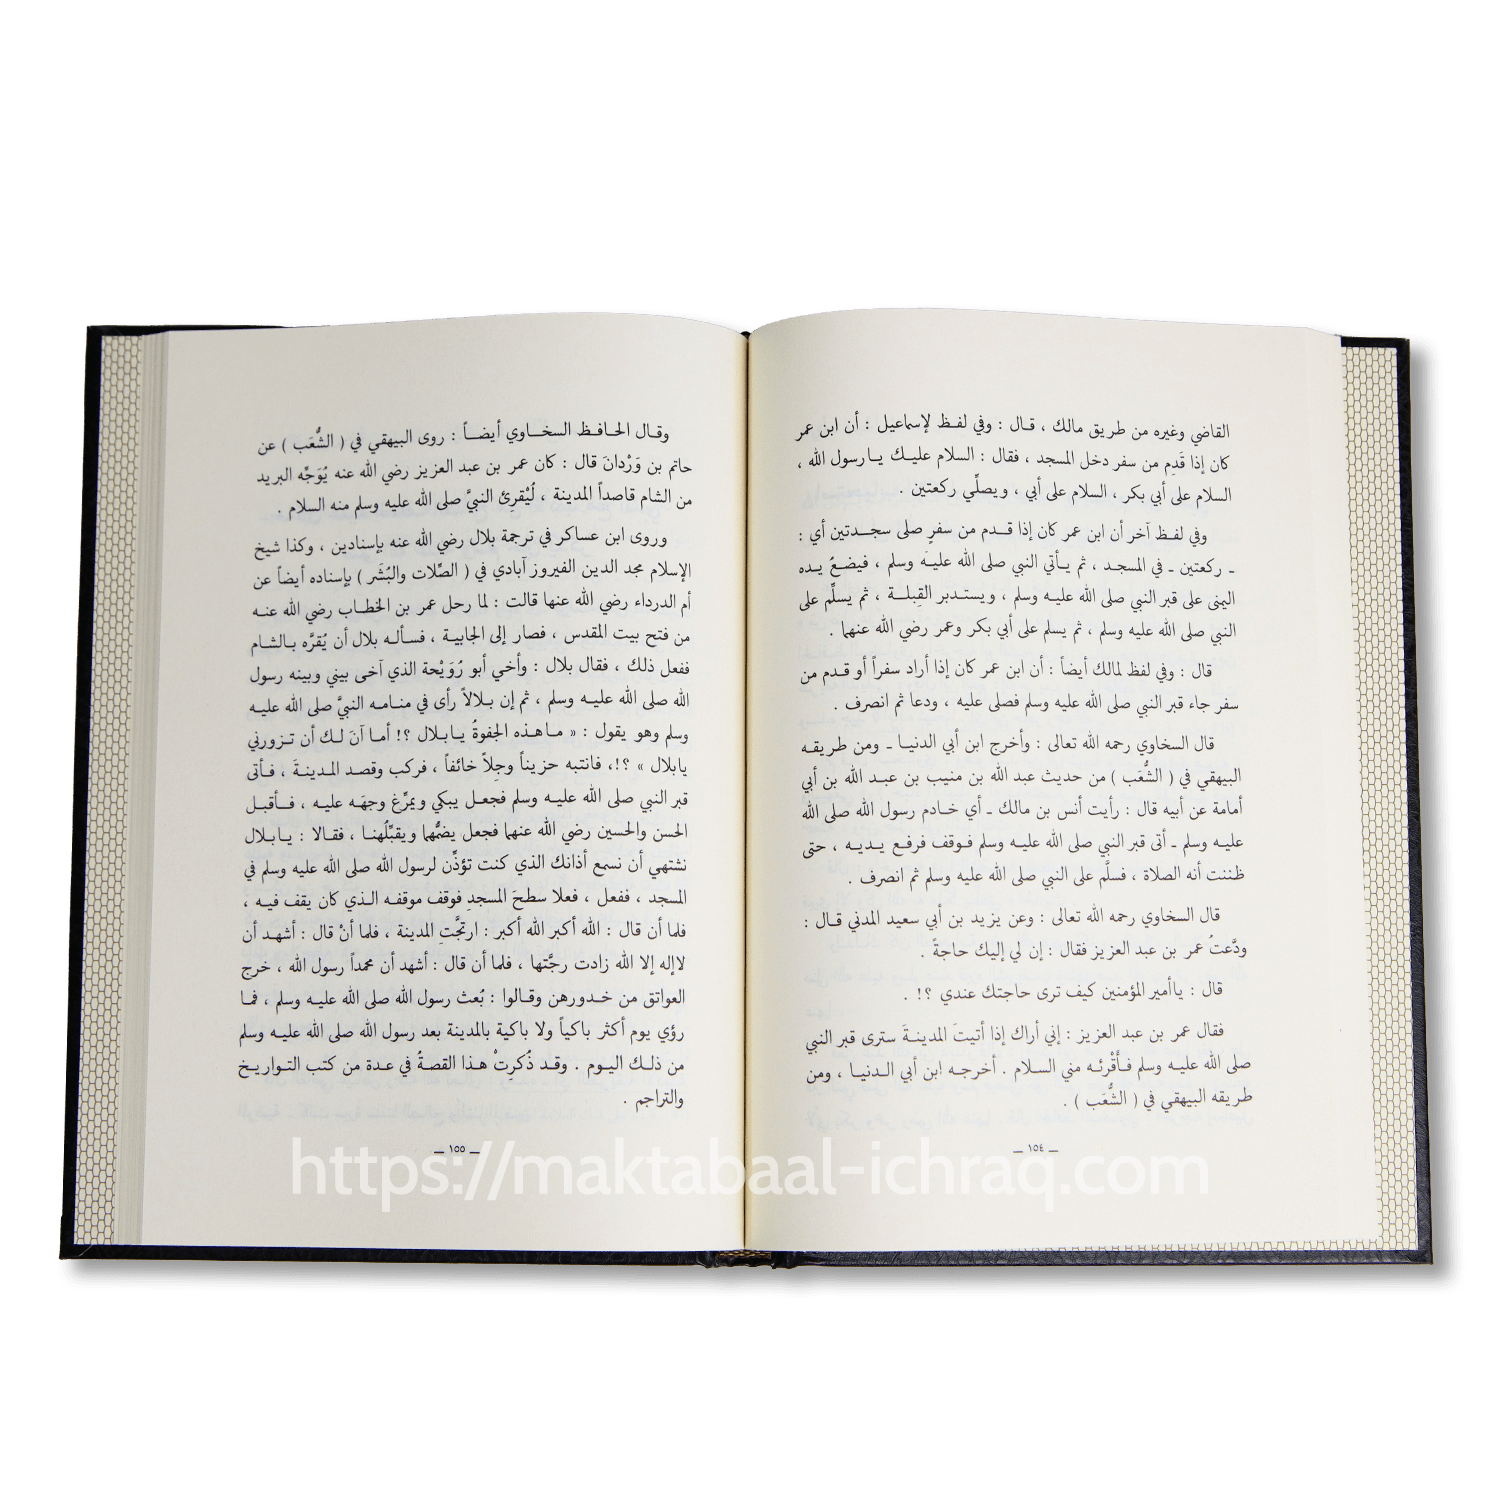 القاضي وغيره من طريق مالك ، قال : وفي لفظ لإسماعيل : أن ابن عمر
كان إذا قَدِم من سفر دخل المسجد ، فقال : السلام عليك يارسول الله ،
السلام على أبي بكر ، السلام على أبي ، ويصلِّي ركعتين .
وفي لفظ آخر أن ابن عمر كان إذا قدم من سفرٍ صلى سجدتين أي :
ـ ركعتين ـ في المسجد ، ثم يأتي النبي صلى الله عليه وسلم ، فيضعُ يده
اليمنى على قبر النبي صلى الله عليه وسلم ، ويستدبر القِبلة ، ثم يسلِّم على
النبي صلى الله عليه وسلم ، ثم يسلم على أبي بكر وعمر رضي الله عنهما .
قال : وفي لفظ لمالك أيضاً : أن ابن عمر كان إذا أراد سفراً أو قدم من
سفر جاء قبر النبي صلى الله عليه وسلم فصلى عليه ، ودعا ثم انصرف .
قال السخاوي رحمه الله تعالى : وأخرج ابن أبي الدنيا ـ ومن طريقه
البيهقي في ( الشُّعَب ) من حديث عبد الله بن منيب بن عبد الله بن أبي
أمامة عن أبيه قال : رأيت أنس بن مالك ـ أي خادم رسول الله صلى الله
عليه وسلم ـ أتى قبر النبي صلى الله عليه وسلم فوقف فرفع يديه ، حتى
ظننت أنه الصلاة ، فسلَّم على النبي صلى الله عليه وسلم ثم انصرف .
قال السخاوي رحمه الله تعالى : وعن يزيد بن أبي سعيد المدني قال :
ودَّعتُ عمر بن عبد العزيز فقال : إن لي إليك حاجةً .
قال : ياأمير المؤمنين كيف ترى حاجتك عندي ؟! .
فقال عمر بن عبد العزيز : إني أراك إذا أتيتَ المدينةَ سترى قبر النبي
صلى الله عليه وسلم فأَقْرئه مني السلام . أخرجه ابن أبي الدنيا ، ومن
طريقه البيهقي في ( الشُّعَب ) .
ـ ١٥٤ ـ
وقال الحافظ السخاوي أيضاً : روى البيهقي في ( الشُّعَب ) عن
حاتم بن وَرْدانَ قال : كان عمر بن عبد العزيز رضي الله عنه يُوَجِّه البريد
من الشام قاصداً المدينة ، ليُقرئ النبيَّ صلى الله عليه وسلم منه السلام .
وروى ابن عساكر في ترجمة بلال رضي الله عنه بإسنادين ، وكذا شيخ
الإسلام مجد الدين الفيروز آبادي في ( الصِّلات والبُشَر ) بإسناده أيضاً عن
أم الدرداء رضي الله عنها قالت : لما رحل عمر بن الخطاب رضي الله عنه
من فتح بيت المقدس ، فصار إلى الجابية ، فسأله بلال أن يُقرَّه بالشام
ففعل ذلك ، فقال بلال : وأخي أبو رُوَيْحة الذي آخى بيني وبينه رسول
الله صلى الله عليه وسلم ، ثم إن بلالاً رأى في منامه النبيَّ صلى الله عليه
وسلم وهو يقول : « ماهذه الجفوةُ يابلال ؟! أما آنَ لك أن تزورني
يابلال » ؟!، فانتبه حزيناً وجِلاً خائفاً ، فركب وقصد المدينةَ ، فأتى
قبر النبي صلى الله عليه وسلم فجعل يبكي ويمرِّغ وجهَه عليه ، فأقبل
الحسن والحسين رضي الله عنهما فجعل يضمُّهما ويقبِّلُهنا ، فقالا : يابلال
نشتهي أن نسمع أذانك الذي كنت تؤذِّن لرسول الله صلى الله عليه وسلم في
المسجد ، ففعل ، فعلا سطحَ المسجدِ فوقف موقفه الذي كان يقف فيه ،
فلما أن قال : الله أكبر الله أكبر : ارتجَّتِ المدينة ، فلما أنْ قال : أشهد أن
لاإله إلا الله زادت رجَّتها ، فلما أن قال : أشهد أن محمداً رسول الله ، خرج
العواتق من خدورهن وقالوا : بُعث رسول الله صلى الله عليه وسلم ، فما
رؤي يوم أكثر باكياً ولا باكية بالمدينة بعد رسول الله صلى الله عليه وسلم
من ذلك اليوم . وقد ذُكرِتْ هذا القصةُ في عدة من كتب التواريخ
والتراجم .
ـ ١٥٥ ـ
https://maktabaal-ichraq.com